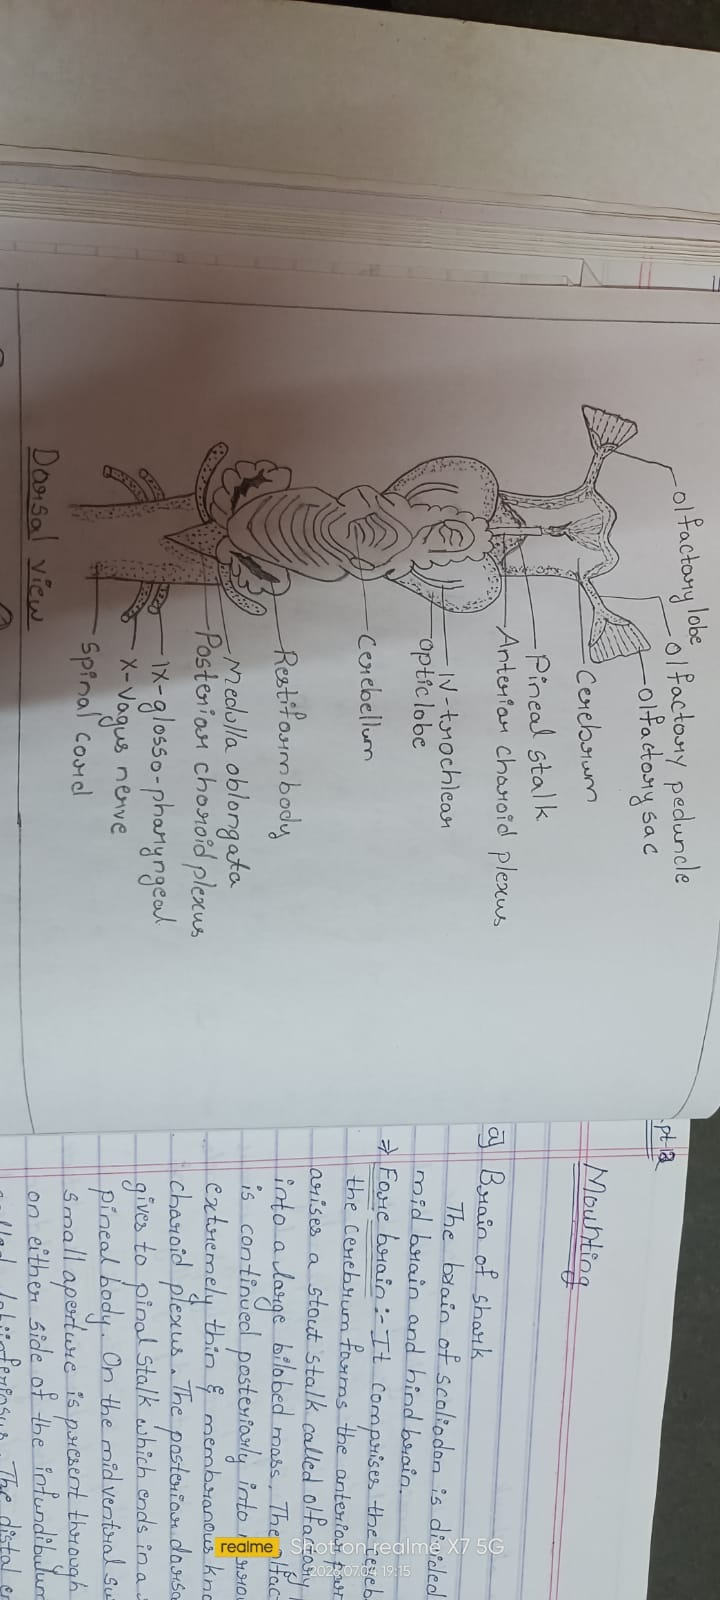 olfactory lobe
olfactory peduncle
olfactory sac
Cerebrum
Pineal stalk
Anterior charoid plexus
IV-trochlear
optic lobe
Cerebellum
Restiform body
medulla oblongata
Posterior charoid plexus
IX-glosso-pharyngeal
X-Vagus nerve
Spinal cord
Dorsal view
pt-12
Mounting
a) Brain of shark
The brain of scoliodon is divided
mid brain and hind brain.
⇒ Fore brain :- It comprises the
the cerebrum forms the anterior
arises a stout stalk called olfactory
into a large bilobed mass. The
is continued posteriorly into
extremely thin & membranous
charoid plexus. The posterior
gives to pinal stalk which ends in a
pineal body. On the mid ventral
small aperture is present through
on either side of the infundibulum
The distal
realme Shot on realme X7 5G
2026.07.04 19:15